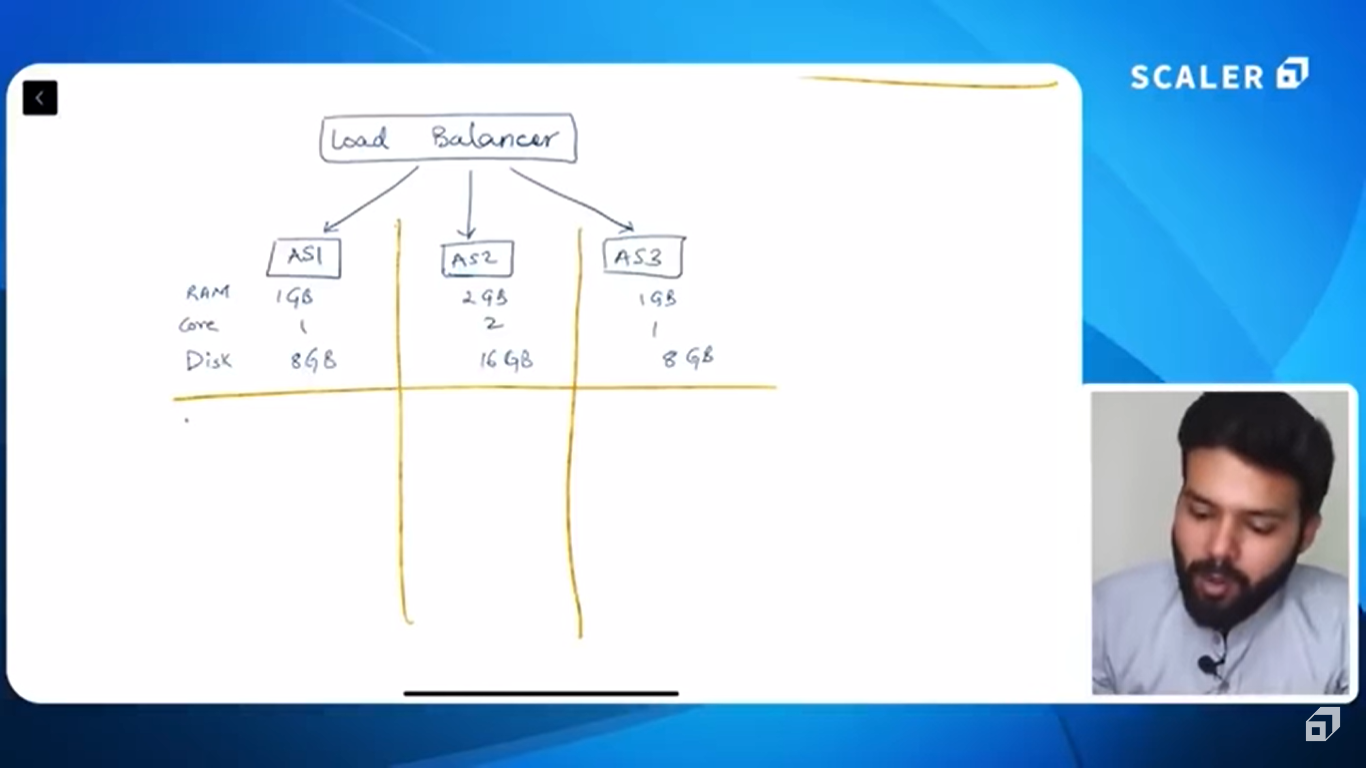 SCALER
Load Balancer
AS1 AS2 AS3
RAM 1GB 2GB 1GB
Core 1 2 1
Disk 8GB 16GB 8GB